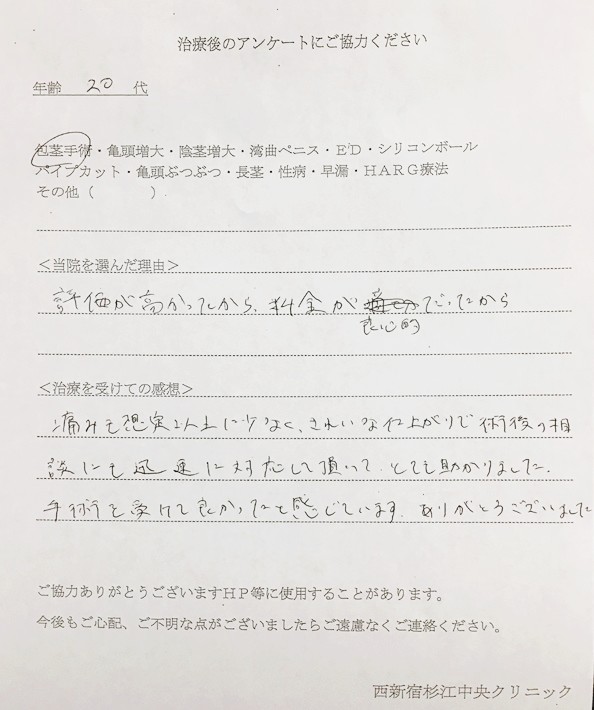 治療後のアンケートにご協力ください
年齢 20 代
包茎手術・亀頭増大・陰茎増大・湾曲ペニス・ED・シリコンボール
パイプカット・亀頭ぶつぶつ・長茎・性病・早漏・HARG療法
その他（ ）
＜当院を選んだ理由＞
評価が高かったから、料金が でだったから
良心的
＜治療を受けての感想＞
痛みも想定以上に少なく、きれいな仕上がりで術後の相
談にも迅速に対応して頂いて、とても助かりました。
手術を受けて良かったと感じています。ありがとうございました
ご協力ありがとうございますHP等に使用することがあります。
今後もご心配、ご不明な点がございましたらご遠慮なくご連絡ください。
西新宿杉江中央クリニック